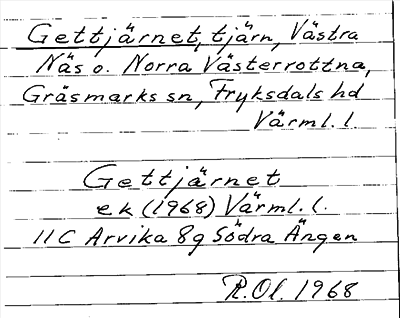 Gettjärnet, tjärn, Västra
Näs o. Norra Västerrottna,
Gräsmarks sn, Fryksdals hd
Värml. l
Gettjärnet
ek (1968) Värml. l.
11C Arvika 8g Södra Ängen
R.Ol. 1968